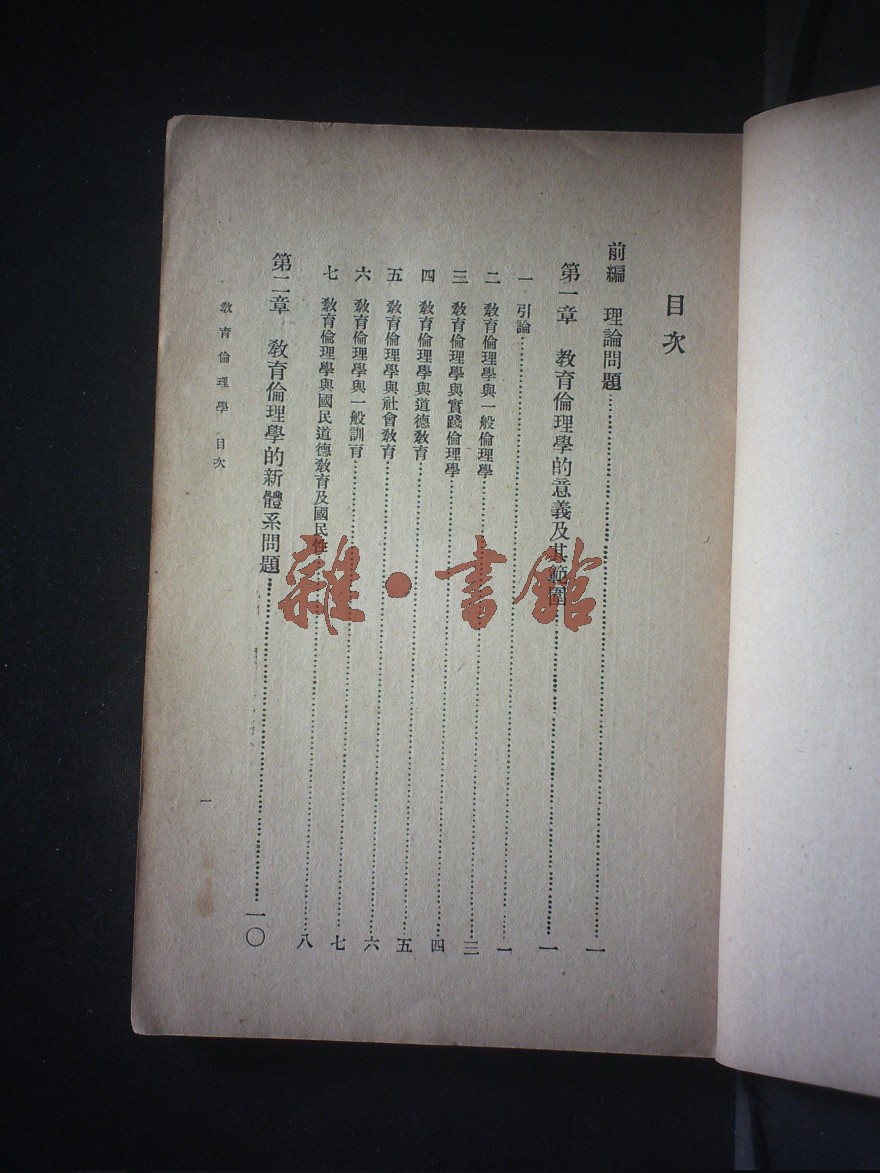 目次
前編　理論問題……一
第一章　教育倫理學的意義及其範圍……一
一　引論……一
二　教育倫理學與一般倫理學……三
三　教育倫理學與實踐倫理學……四
四　教育倫理學與道德教育……五
五　教育倫理學與社會教育……六
六　教育倫理學與一般訓育……七
七　教育倫理學與國民道德教育及國民性……八
第二章　教育倫理學的新體系問題……一〇
教育倫理學　目次
一
雜·書館